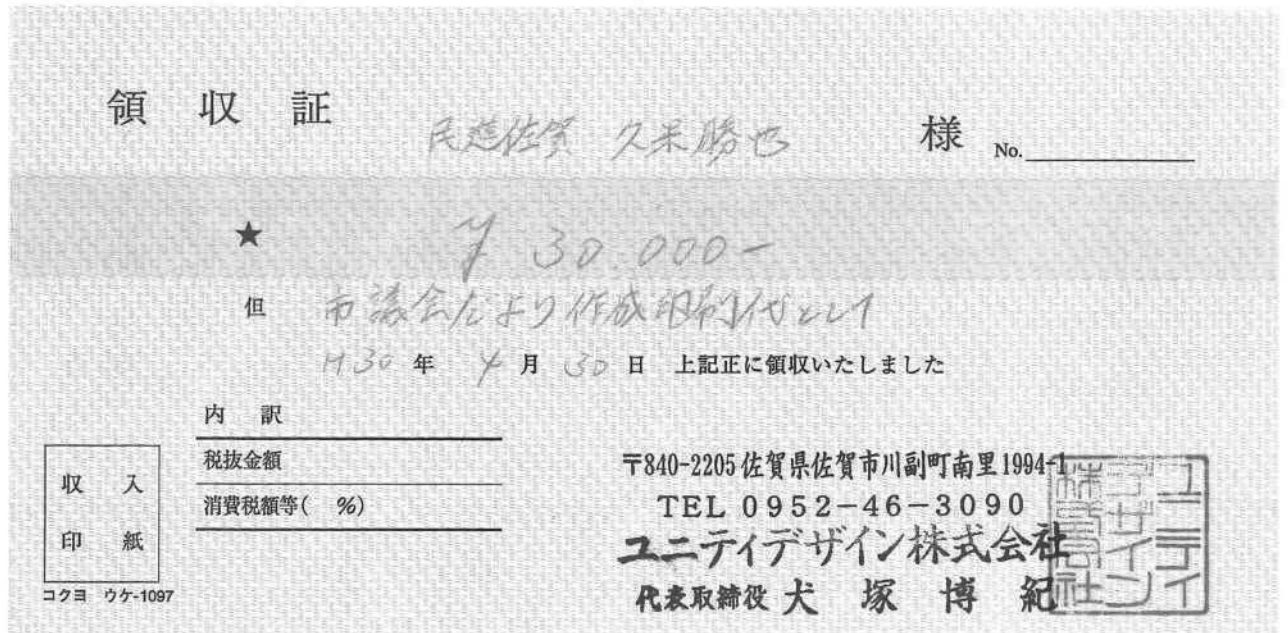 領収証 民進佐賀 久米勝也 様 No.
★ ¥30.000-
但 市議会だより作成印刷代として
H30年 4月 30日 上記正に領収いたしました
内訳
税抜金額
消費税額等( %)
収入
印紙
コクヨ ウケ-1097
〒840-2205 佐賀県佐賀市川副町南里1994-1
TEL 0952-46-3090
ユニティデザイン株式会社
代表取締役 犬塚博紀
ユニティデザイン株式会社